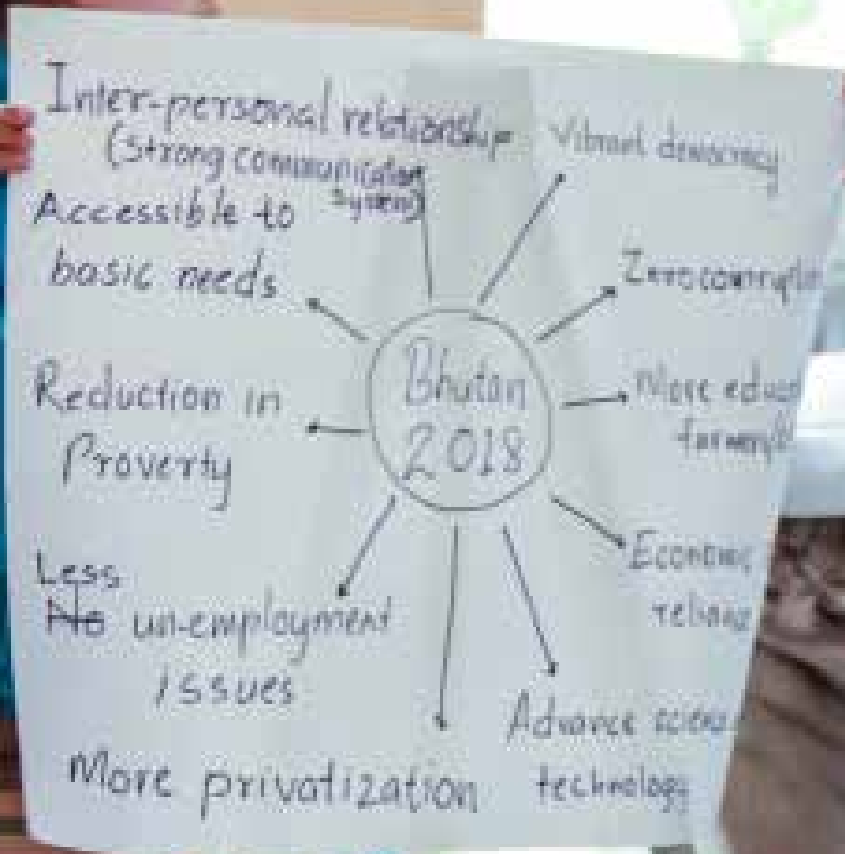 Inter-personal relationship
(Strong communication
system)
Accessible to
basic needs
Reduction in
Proverty
Less
No un-employment
issues
More privatization
Bhutan
2018
Vibrant democracy
Zero
More
Economic
Advance
technology